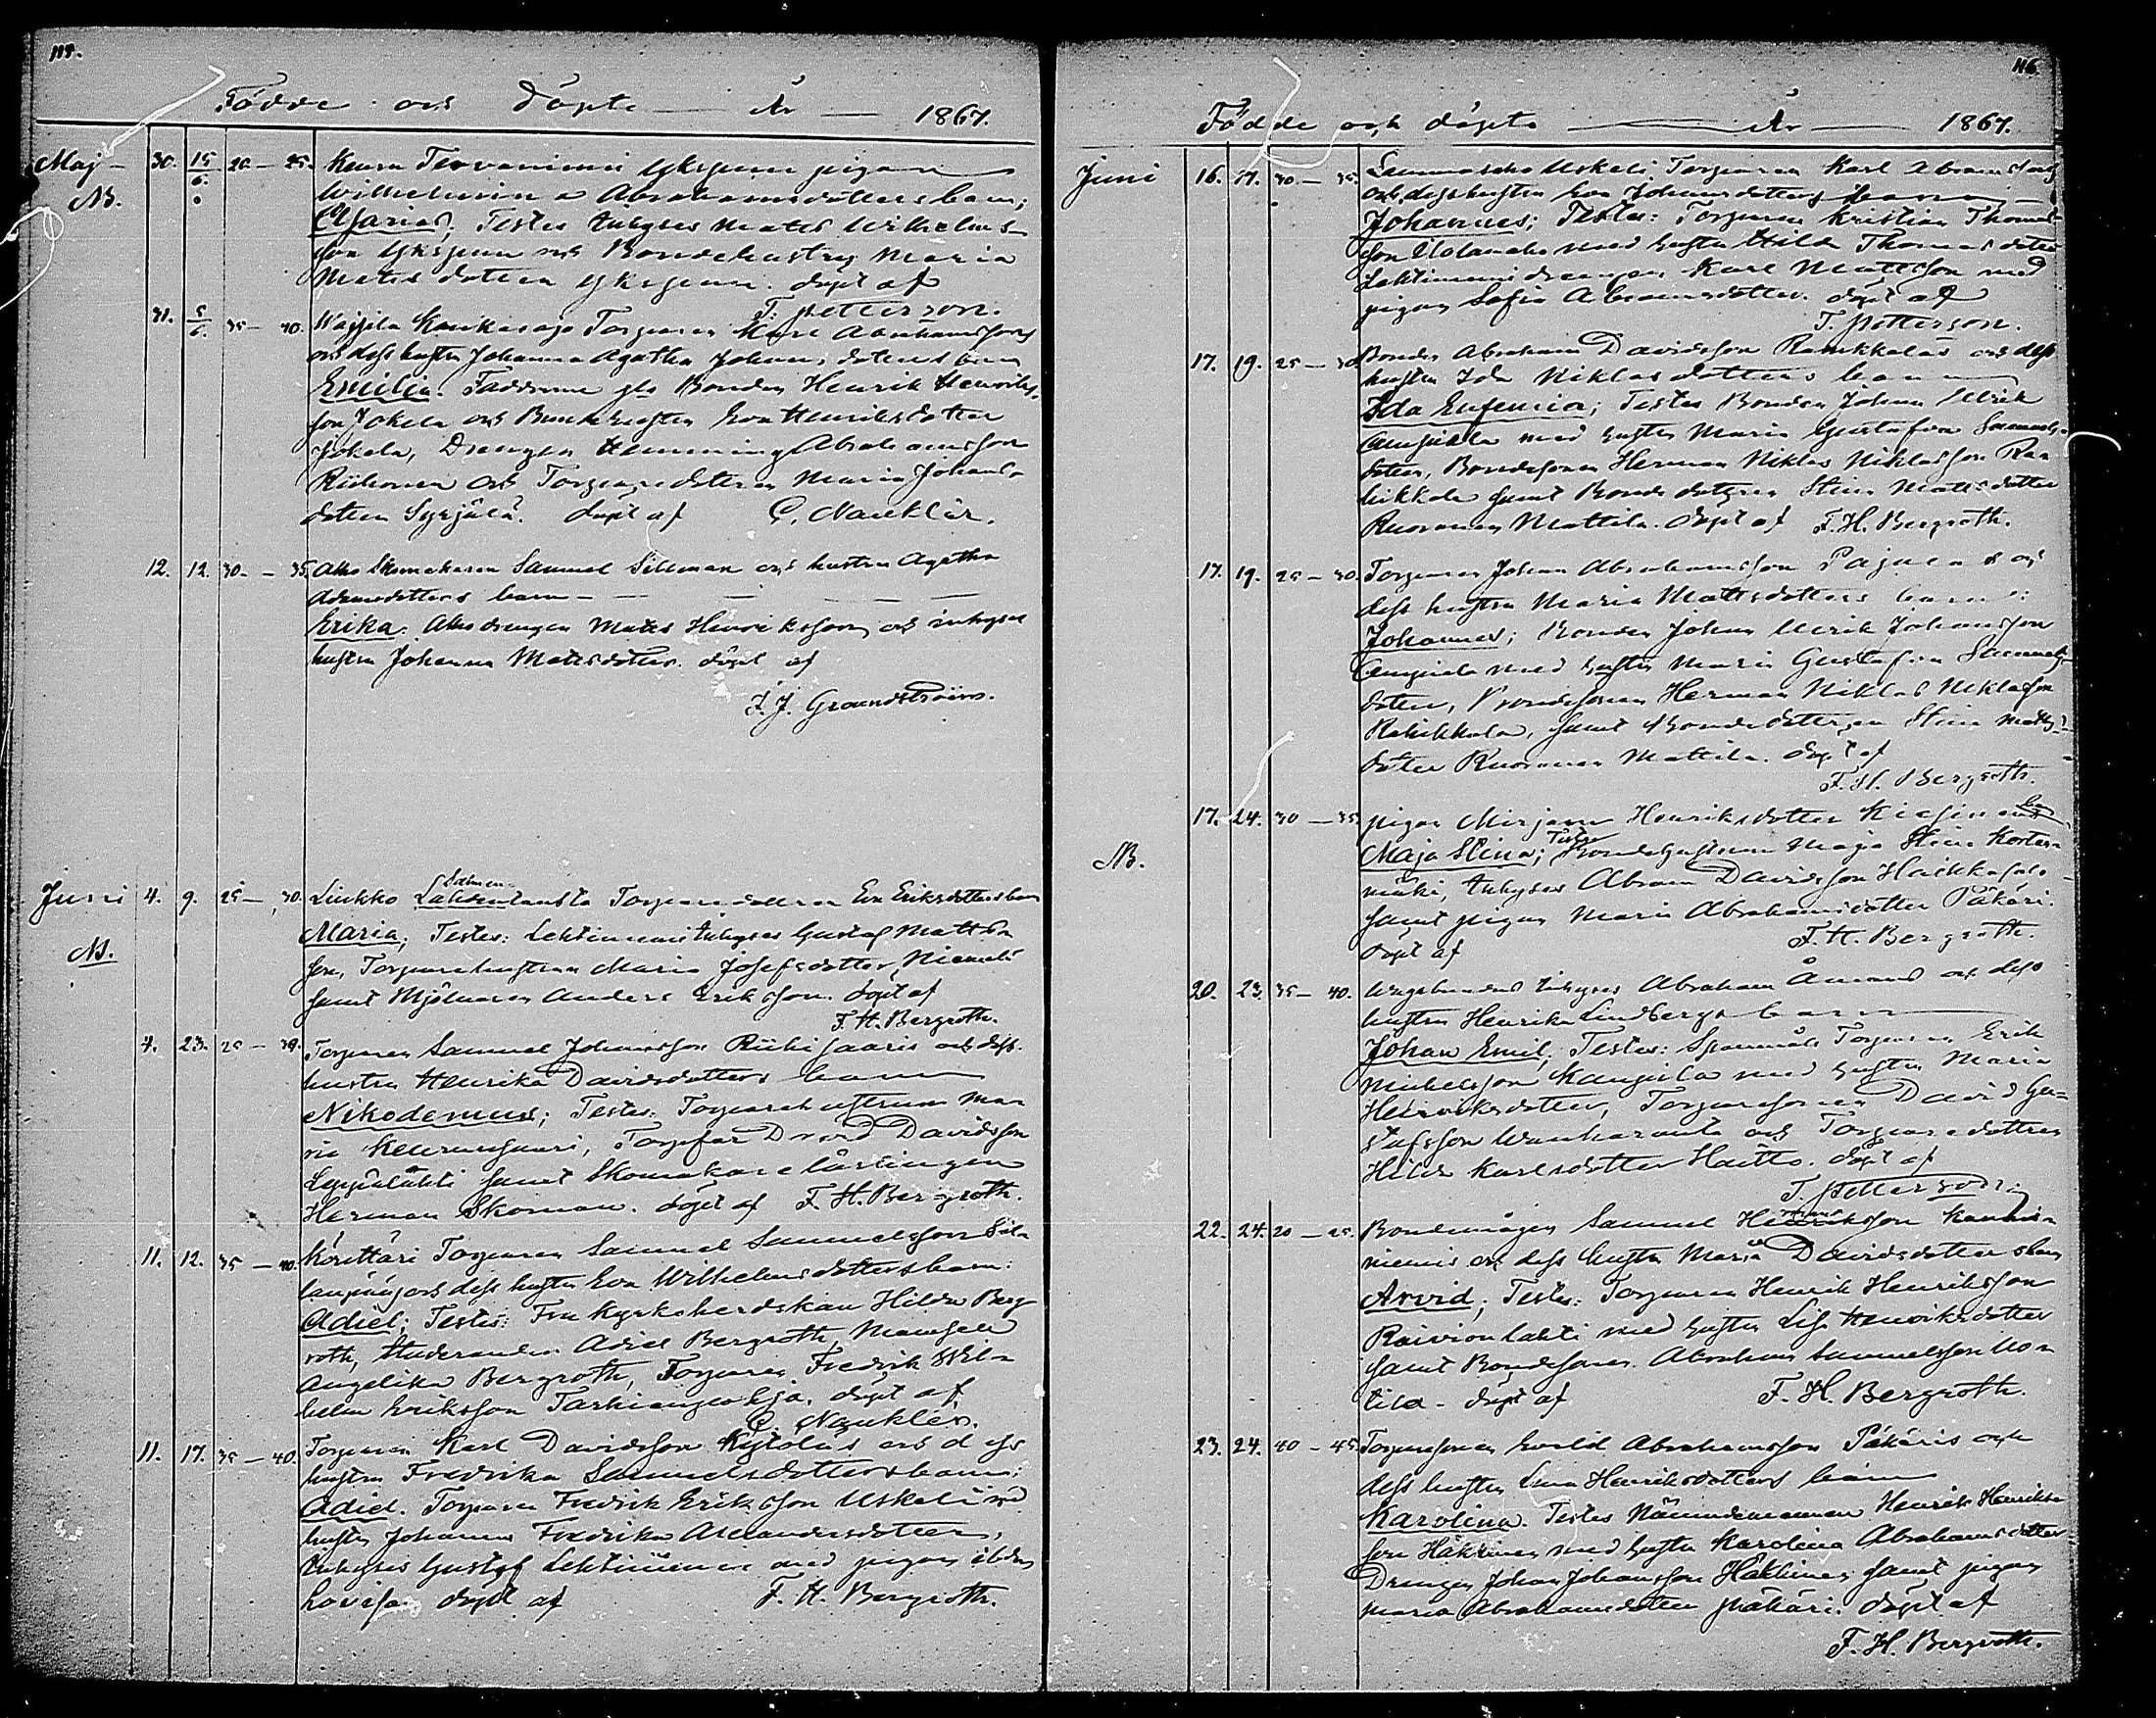 114.
Födde och Döpte År 1867.
Maj 30. 15/6. 20-25. Keuru Tervaniemi Ykspuu pigan
NB. Wilhelmina Abrahamsdotters barn;
Maria; Testes Inhyses Matts Wilhelms
son Ykspuu och Bondehustru Maria
Mattsdotter Ykspuu. döpt af
T. Petterson.
31. 5/6. 35-40. Torparen Karl Abrahamssons
och dess hustru Johanna Agatha Johansdotters barn
Emilia. Faddrarne Bonden Henrik Henriks
son Jokela och Bondehustru Eva Henriksdotter
Jokela, Drängen Hemming Abrahamsson
Riihonen och Torparedottren Maria Johans
dotter Syrjälä. döpt af C. Nauklér.
12. 12. 30-35. Skomakaren Samuel Sillman och hustru Agatha
Adamsdotters barn
Erika. drängen Matts Henriksson och inhyses
hustru Johanna Mattsdotter. döpt af
F. J. Grandström.
Juni 4. 9. 25-30. Liukko Torparedottren Eva Eriksdotters barn
NB. Maria; Testes: Lehtiniemi Inhyses Gustaf Matts
son, Torparehustrun Maria Josefsdotter Niemelä
samt Mjölnaren Anders Eriksson. döpt af
F. H. Bergroth.
4. 23. 25-30. Torparen Samuel Johansson Riihisaaris och dess
hustru Henrika Davidsdotters barn
Nikodemus; Testes: Torparehustrun Ma
ria Torpfar David Davidsson
Leppälahti samt Skomakare lärlingen
Herman Skoman. döpt af F. H. Bergroth.
11. 12. 35-40. Torparen Samuel Samuelsson Sil
lanpää och dess hustru Eva Wilhelmsdotters barn:
Adiel; Testes: Fru Kyrkoherdskan Hilda Berg
roth, Studeranden Adiel Bergroth, Mamsell
Angelika Bergroth, Torparen Fredrik Wil
helm Eriksson döpt af
C. Nauklér.
11. 17. 35-40. Torparen Karl Davidsson och dess
hustru Fredrika Samuelsdotters barn:
Adiel. Torparen Fredrik Eriksson Uskeli med
hustru Johanna Fredrika Alexandersdotter,
Inhyses Gustaf Lehtiniemi med pigan
Lovisa. döpt af F. H. Bergroth.
116.
Födde och döpte År 1867.
Juni 16. 17. 30-35. Uskeli Torparen Karl Abramssons
och dess hustru Eva Johansdotters barn
Johannes; Testes: Torparen Kristian Thomas
son med hustru Hilda Thomasdotter
Lehtiniemi drängen Karl Mattsson med
pigan Sofia Abramsdotter. döpt af
T. Petterson.
17. 19. 25-30. Bonden Abraham Davidsson och dess
hustru Ida Niklasdotters barn
Ida Eufemia; Testes Bonden Johan Ulrik
Ampiala med hustru Maria Gustafva Samuels
dotter, Bondesonen Herman Niklas Niklasson
samt Bondedottren Stina Mattsdotter
Ruoranen Mattila. döpt af F. H. Bergroth.
17. 19. 25-30. Torparen Johan Abrahamsson och
dess hustru Maria Mattsdotters barn:
Johannes; Bonden Johan Ulrik Johansson
Ampiala med hustru Maria Gustafva Samuels
dotter, Bondesonen Herman Niklas Niklasson
samt Bondedottren Stina Matts
dotter Ruoranen Mattila. döpt af
F. H. Bergroth.
17. 24. 30-35. pigan Mirjam Henriksdotter barn
NB. Maja Stina; Testes Bondehustrun Maja Stina Korten
mäki, Inhyses Abram Davidsson
samt pigan Maria Abrahamsdotter Päkäri.
döpt af F. H. Bergroth.
20. 23. 35-40. Inhyses Abraham och dess
hustru Henrika Lindbergs barn
Johan Emil; Testes: Torparen Erik
Mickelsson med hustru Maria
Henriksdotter, Torparesonen David Gu
stafsson och Torparedottren
Hilda Karlsdotter Hautto. döpt af
T. Petterson.
22. 24. 20-25. Bondemågen Samuel Henriksson
niemis och dess hustru Maria Davidsdotters barn
Arvid; Testes: Torparen Henrik Henriksson
Raivionlahti med hustru Lisa Henriksdotter
samt Bondesonen Abraham Samuelsson
tila. döpt af F. H. Bergroth.
23. 24. 40-45. Torparesonen Evald Abrahamsson Päkäris och
dess hustru Lena Henriksdotters barn
Karolina. Testes Nämndemannen Henrik Henriks
son Häkkinen med hustru Karolina Abrahamsdotter
Drängen Johan Johansson Häkkinen samt pigan
Maria Abrahamsdotter Päkäri. döpt af
F. H. Bergroth.